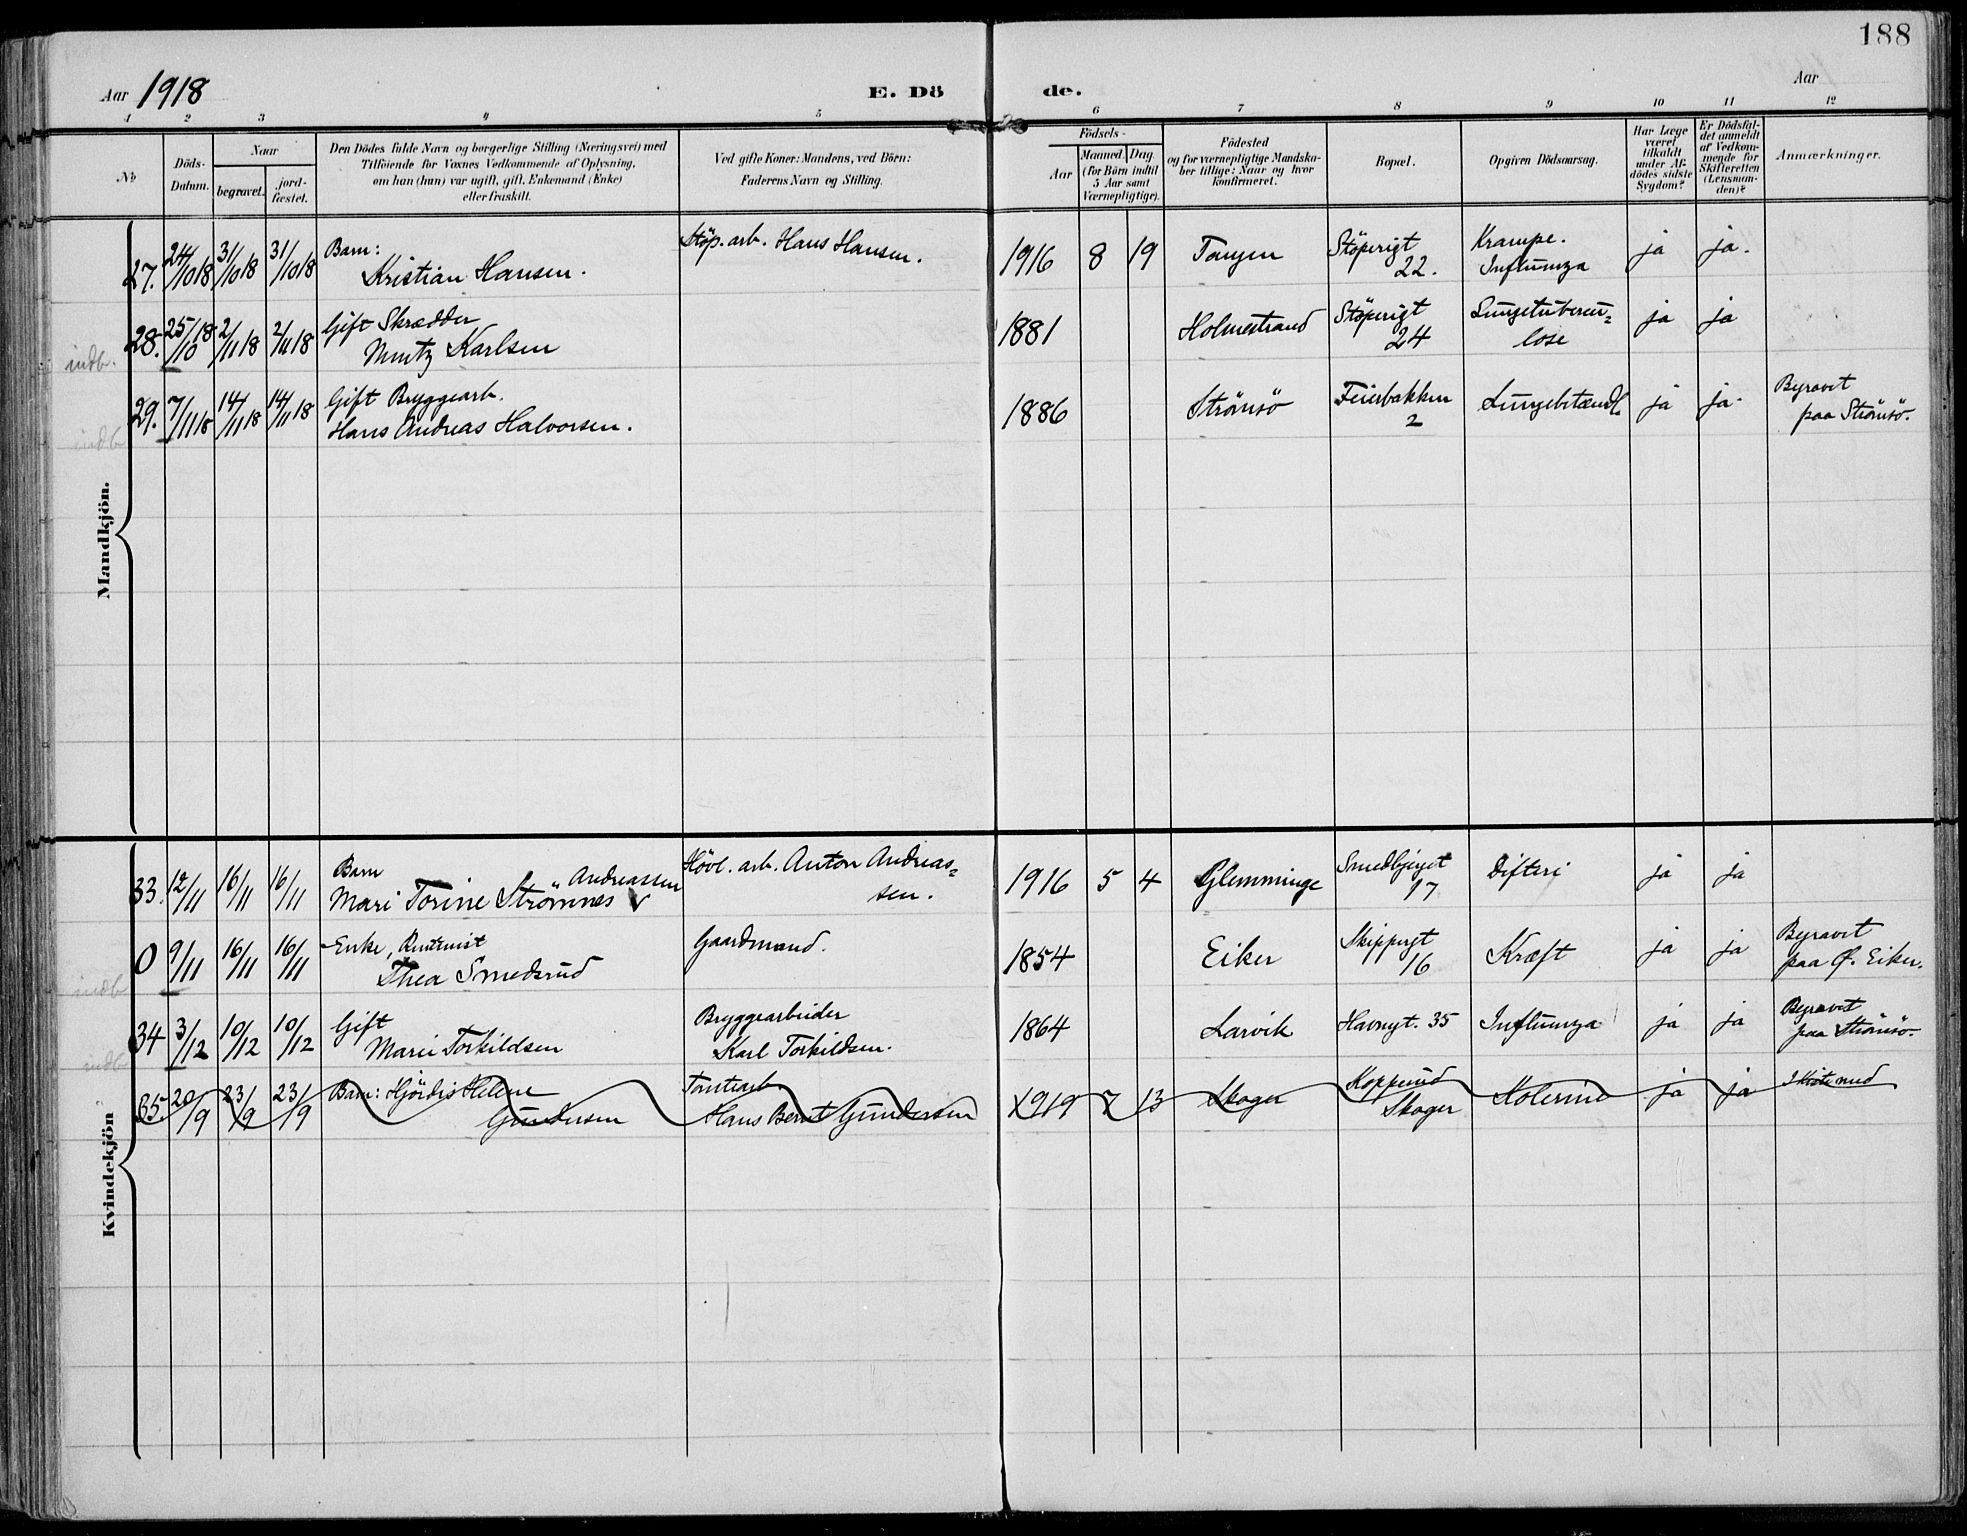 188
Aar 1918
E. Dö
de.
Aar
1 2 3 4 5 6 7 8 9 10 11 12
No
Döds-
Datum.
Naar
begravet.
jord-
fæstet.
Den Dödes fulde Navn og borgerlige Stilling (Næringsvei) med
Tilföiende for Voxnes Vedkommende af Oplysning,
om han (hun) var ugift, gift, Enkemand (Enke)
eller fraskilt.
Ved gifte Koner: Mandens, ved Börn:
Faderens Navn og Stilling.
Födsels-
Aar
Maaned. Dag
(for Börn indtil
5 Aar samt
Værnepligtige).
Födested
og for værnepligtige Mandska-
ber tillige: Naar og hvor
konfirmeret.
Bopæl.
Opgiven Dödsaarsag.
Har Læge
været
tilkaldt
under Af-
dödes sidste
Sygdom?
Er Dödsfal-
det anmeldt
af Vedkom-
mende for
Skifteretten
(Lensman-
den)?
Anmærkninger.
Mandkjön.
27. 24/10 18 31/10 18 31/10 18 Barn:
Kristian Hansen.
Støp. arb. Hans Hansen.
1916 8 19 Tangen
Støperigt
22.
Krampe.
Influenza
ja ja.
indb.
28. 25/10 18 2/11 18 2/11 18 Gift Skrædder
Karlsen
1881 Holmestrand
Støperigt
24
Lungetubercu=
lose
ja ja
indb
29. 7/11 18 14/11 18 14/11 18 Gift Bryggearb.
Hans Andreas Halvorsen.
1886 Strömsö
Feierbakken
2
Lungebetændl.
ja ja.
Byravet
paa Strömsö.
Kvindekjön
33. 12/11 16/11 16/11 Barn
Andreassen
Mari Torine Strömnes V
Høvl. arb. Anton Andreas=
sen.
1916 5 4 Glemminge
Smedbjerget
17
Difteri
ja ja
indb
0 9/11 16/11 16/11 Enke,
Thea Smedsrud
Gaardmand.
1854 Eiker
Skippergt
16
Kræft
ja ja
Byravet
paa Ø. Eiker.
indb
34 3/12 10/12 10/12 Gift
Marie Torkildsen
Bryggearbeider
Karl Torkildsen.
1864 Larvik
Havnegt. 35
Influenza
ja ja
Byravet
paa Strömsö.
35. 20/9 23/9 23/9 Barn: Hjördis Helene
Gundersen
Tomtearb
Hans Bernt Gundersen
1919 7 13 Skoger
Kopperud
Skoger
Kolerine
ja ja